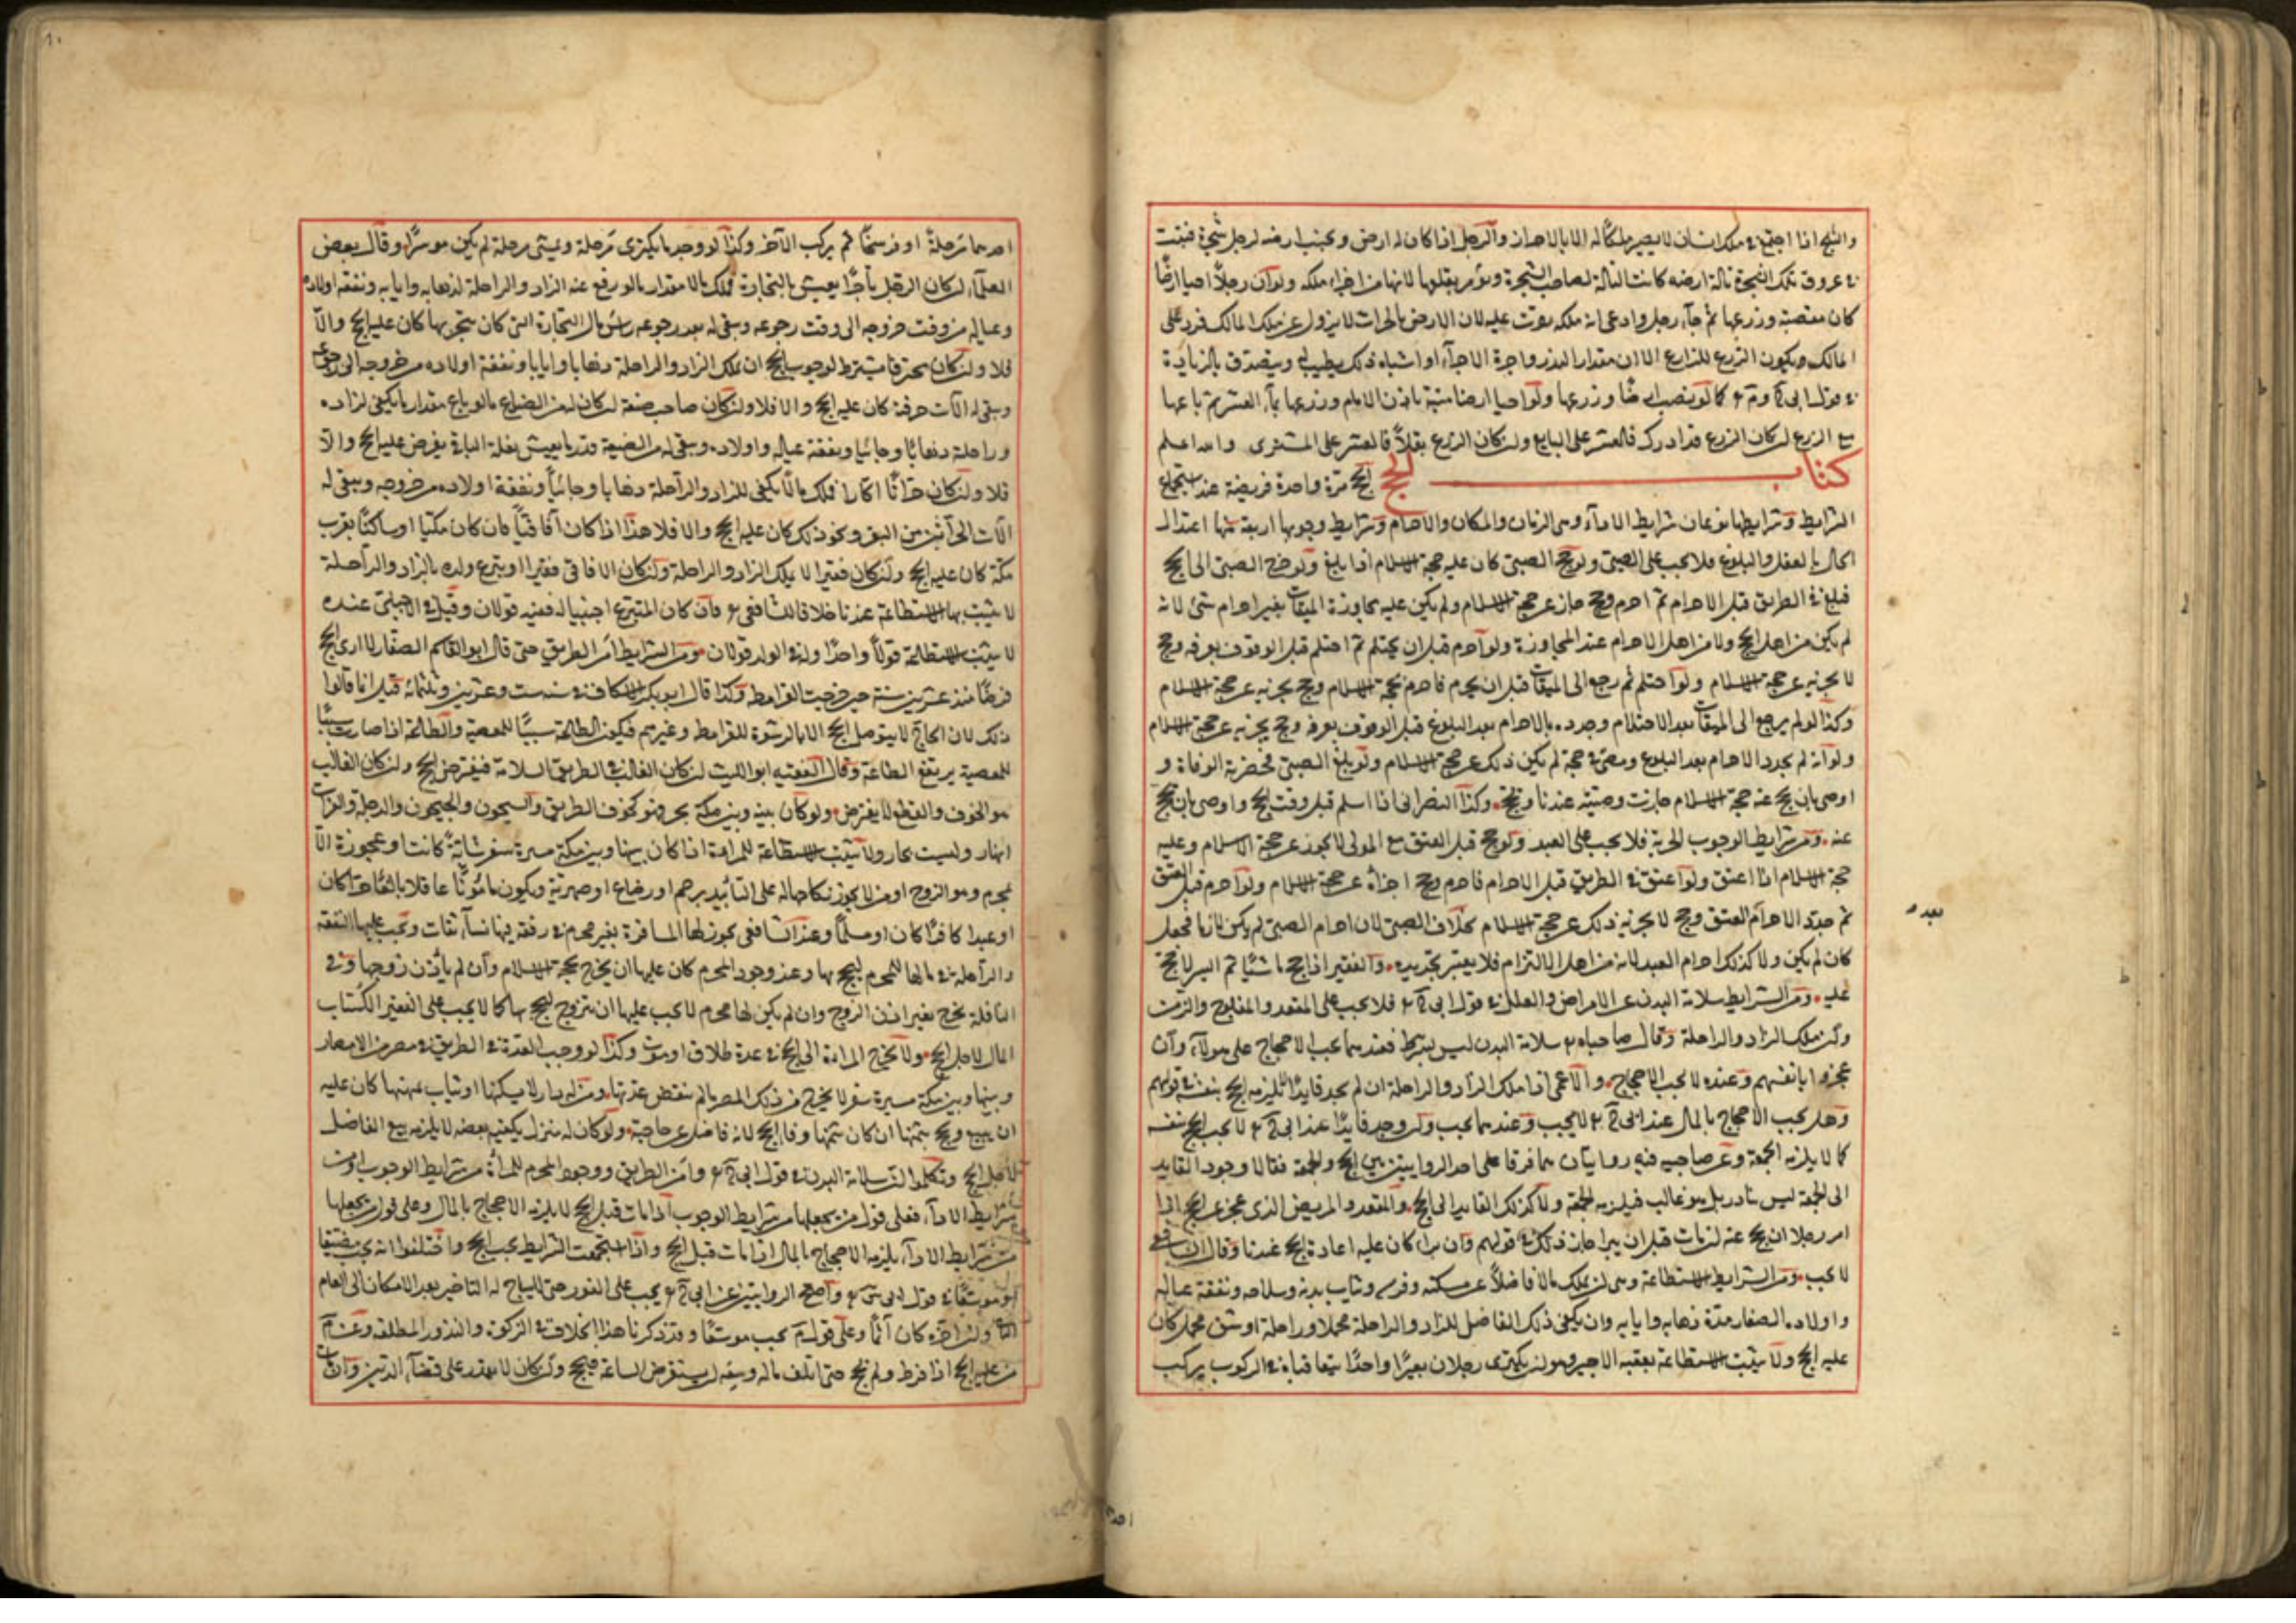 والثلج اذا اجتمع في ملك انسان لا يصير ملكًا له الا بالاحراز والرجل اذا كان له ارض وبجنب ارضه لرجل شجرة فنبتت
من عروق تلك الشجرة تالة في ارضه كانت التالة لصاحب الشجرة ويؤمر بقلعها لانها من اجزاء ملكه ولو ان رجلًا احيا ارضًا
كان مغصبة وزرعها ثم جاء رجل وادعى انه ملكه عليه لان الارض بالخراب لا يزول عن ملك المالك فرد على
المالك ويكون الزرع للزارع الا ان مقدار البذر واجرة الاجراء او اشباه ذلك يطيب له ويتصدق بالزيادة
في قول ابي ح وم كما لو غصب ارضًا وزرعها ولو احيا ارضا ميتة باذن الامام وزرعها بماء العشر ثم باعها
مع الزرع ان كان الزرع قد ادرك فالعشر على البايع وان كان الزرع بقلًا فالعشر على المشترى والله اعلم
كتاب الحج الحج مرة واحدة فريضة عند استجماع
الشرايط وشرايطها نوعان شرايط الاداء وهى الزمان والمكان والاحرام وشرايط وجوبها اربعة منها اعتدال
الحال بالعقل والبلوغ فلا يجب على الصبى ولو حج الصبى كان عليه حجة الاسلام اذا بلغ ولو خرج الصبى الى الحج
فبلغ في الطريق قبل الاحرام ثم احرم وحج جاز عن حجة الاسلام ولم يكن عليه بمجاوزة الميقات بغير احرام شئ لانه
لم يكن من اهل الحج ولا من اهل الاحرام عند المجاوزة ولو احرم قبل ان يحتلم ثم احتلم قبل الوقوف بعرفة وحج
لا يجزيه عن حجة الاسلام ولو احتلم ثم رجع الى الميقات قبل ان يحرم فاحرم بحجة الاسلام وحج يجزيه عن حجة الاسلام
وكذا لو لم يرجع الى الميقات بعد الاحتلام وجدده بالاحرام بعد البلوغ قبل الوقوف بعرفة وحج يجزيه عن حجة الاسلام
ولو انه لم يجدد الاحرام بعد البلوغ ومضى في حجة لم يكن ذلك عن حجة الاسلام ولو بلغ الصبى فحضرته الوفاة و
اوصى بان يحج عنه حجة الاسلام جازت وصيته عندنا ويحج وكذا النصرانى اذا اسلم قبل وقت الحج واوصى بان يحج
عنه ومن شرايط الوجوب الحرية فلا يجب على العبد ولو حج قبل العتق مع المولى لا يجوز عن حجة الاسلام وعليه
حجة الاسلام اذا اعتق ولو اعتق في الطريق قبل الاحرام فاحرم وحج اجزأه عن حجة الاسلام ولو احرم قبل العتق
ثم جدد الاحرام العتق وحج لا يجزيه ذلك عن حجة الاسلام بخلاف الصبى لان احرام الصبى لم يكن لازما فجعل
بعد
كان لم يكن ولا كذلك احرام العبد لانه من اهل الالتزام فلا يعتبر تجديده والفقير اذا حج ماشيًا ثم ايسر لا حج
عليه ومن الشرايط سلامة البدن عن الامراض والعلل في قول ابي ح فلا يجب على المقعد والمفلوج والزمن
وان ملك الزاد والراحلة وقال صاحباه سلامة البدن ليس بشرط فعندهما يجب الاحجاج على هولاء وان
عجزوا بانفسهم وعنده لا يجب الاحجاج والاعمى اذا ملك الزاد والراحلة ان لم يجد قايدًا لا يلزمه الحج بنفسه في قولهم
وهل يجب الاحجاج بالمال عند ابى ح لا يجب وعندهما يجب وان وجد قايدًا عند ابى ح لا يجب الحج بنفسه
كما لا يلزمه الجمعة وعن صاحبيه فيه روايتان هما فرقا على احد الروايتين بين الحج والجمعة فقالا وجود القايد
الى الجمعة ليس بنادر بل هو غالب فيلزمه الجمعة ولا كذلك القايد الى الحج والمقعد والمريض الذى عجز عن الحج اذا
امر رجلا ان يحج عنه ان مات قبل ان يبرا جاز ذلك في قولهم وان برا كان عليه اعادة الحج عندنا وقال الشافعى
لا يجب ومن الشرايط الاستطاعة وهى ان يملك مالا فاضلًا عن مسكنه وفرسه وثياب بدنه وسلاحه ونفقة عياله
واولاده الصغار مدة ذهابه وايابه وان يكفى ذلك الفاضل للزاد والراحلة محملا وراحلة او شق محمل كان
عليه الحج ولا يثبت الاستطاعة بعقبة الاجير وهو ان يكترى رجلان بعيرًا واحدًا يتعاقبان في الركوب يركب
احدهما مرحلة او فرسخًا ثم يركب الآخر وكذا لو وجد ما يكترى مرحلة ويمشى مرحلة لم يكن موسرًا وقال بعض
العلماء ان كان الرجل تاجرًا يعيش بالتجارة فملك مالا مقدار ما لو رفع عنه الزاد والراحلة لذهابه وايابه ونفقة اولاده
وعياله من وقت خروجه الى وقت رجوعه ويبقى له بعد رجوعه رأس مال التجارة التى كان يتجر بها كان عليه الحج والا
فلا وان كان محترفا يشترط لوجوب الحج ان يملك الزاد والراحلة ذهابا وايابا ونفقة اولاده من خروجه الى رجوعه
ويبقى له الآت حرفته كان عليه الحج والا فلا وان كان صاحب ضيعة ان كان له من الضياع ما لو باع مقدار ما يكفى لزاده
وراحلته ذهابًا وجائيا ونفقة عياله واولاده ويبقى له من الضيعة قدر ما يعيش بغلة الباقى يفرض عليه الحج والا
فلا وان كان حراثًا اكارا فملك مالًا يكفى للزاد والراحلة ذهابا وجائيًا ونفقة اولاده من خروجه ويبقى له
الآت الحراثين من البقر ونحو ذلك كان عليه الحج والا فلا هذا اذا كان آفاقيًا فان كان مكيا او ساكنًا بقرب
مكة كان عليه الحج وان كان فقيرا لا يملك الزاد والراحلة وان كان الافاقى فقيرا وتبرع ولده بالزاد والراحلة
لا يثبت بها الاستطاعة عندنا خلافا للشافعى فان كان المتبرع اجنبيا له فيه قولان وقيل في الاجنبى عنده
لا يثبت الاستطاعة قولًا واحدًا وله في الولد قولان ومن الشرايط امن الطريق حتى قال ابو القاسم الصفار لا ارى الحج
فرضًا منذ عشرين سنة حين خرجت القرامطة وكذا قال ابو بكر الاسكاف في سنة ست وعشرين وثلثمائة قيل انما قالوا
ذلك لان الحاج لا يتوصل الحج الا بالرشوة للقرامطة وغيرهم فيكون الطاعة سببًا للمعصية والطاعة اذا صارت سببًا
للمعصية يرتفع الطاعة وقال الفقيه ابو الليث ان كان الغالب في الطريق السلامة فيفترض الحج وان كان الغالب
هو الخوف والقطع لا يفترض ولو كان بينه وبين مكة بحر فهو كخوف الطريق والسيحون والجيحون والدجلة والفرات
انهار وليست بحار ولا يثبت الاستطاعة للمراة اذا كان بينها وبين مكة مسيرة سفر شابة كانت او عجوزة الا
بمحرم وهو الزوج او من لا يجوز نكاحها له على التأبيد برحم او رضاع او صهرية ويكون مأمونًا عاقلا بالغًا حرا كان
او عبدا كافرًا كان او مسلمًا وعند الشافعى يجوز لها المسافرة بغير محرم في رفقة فيها نساء ثقات وتجب عليها النفقة
والراحلة في مالها للمحرم ليحج بها وعند وجود المحرم كان عليها ان يخرج بحجة الاسلام وان لم يأذن زوجها وفى
النافلة لا يخرج بغير اذن الزوج وان لم يكن لها محرم لا يجب عليها ان يتزوج ليحج بها كما لا يجب على الفقير اكتساب
المال لاجل الحج ولا يخرج المراة الى الحج في عدة طلاق او موت وكذا لو وجب العدة في الطريق في مصر من الامصار
وبينها وبين مكة مسيرة سفر لا يخرج من ذلك المصر ما لم ينقض عدتها ومن له دار لا يسكنها او ثياب يمتهنها كان عليه
ان يبيع ويحج بثمنها ان كان ثمنها وفا الحج لانه فاضل عن حاجته ولو كان له منزل يكفيه بعضه لا يلزمه بيع الفاضل
لاجل الحج وتكلموا ان سلامة البدن في قول ابى ح وامن الطريق ووجود المحرم للمرأة من شرايط الوجوب او من
شرايط الاداء فعلى قول من يجعلها من شرايط الوجوب اذا مات قبل الحج لا يلزمه الاحجاج بالمال وعلى قول من يجعلها
من شرايط الاداء يلزمه الاحجاج بالمال اذا مات قبل الحج واذا استجمعت الشرايط يجب الحج واختلفوا انه يجب مضيقا
او موسعًا في قول ابى س واصح الروايتين عن ابى ح يجب على الفور حتى لا يباح له التاخير بعد الامكان الى العام
الثانى وان اخره كان آثمًا وعلى قول م يجب موسعًا وقد ذكرنا هذا الخلاف في الزكوة والنذور المطلقة وعن م
من عليه الحج اذا فرط ولم يحج حتى اتلف ماله وسعه ان يستقرض الساعة فيحج وان كان لا يقدر على قضاء الدين وان مات